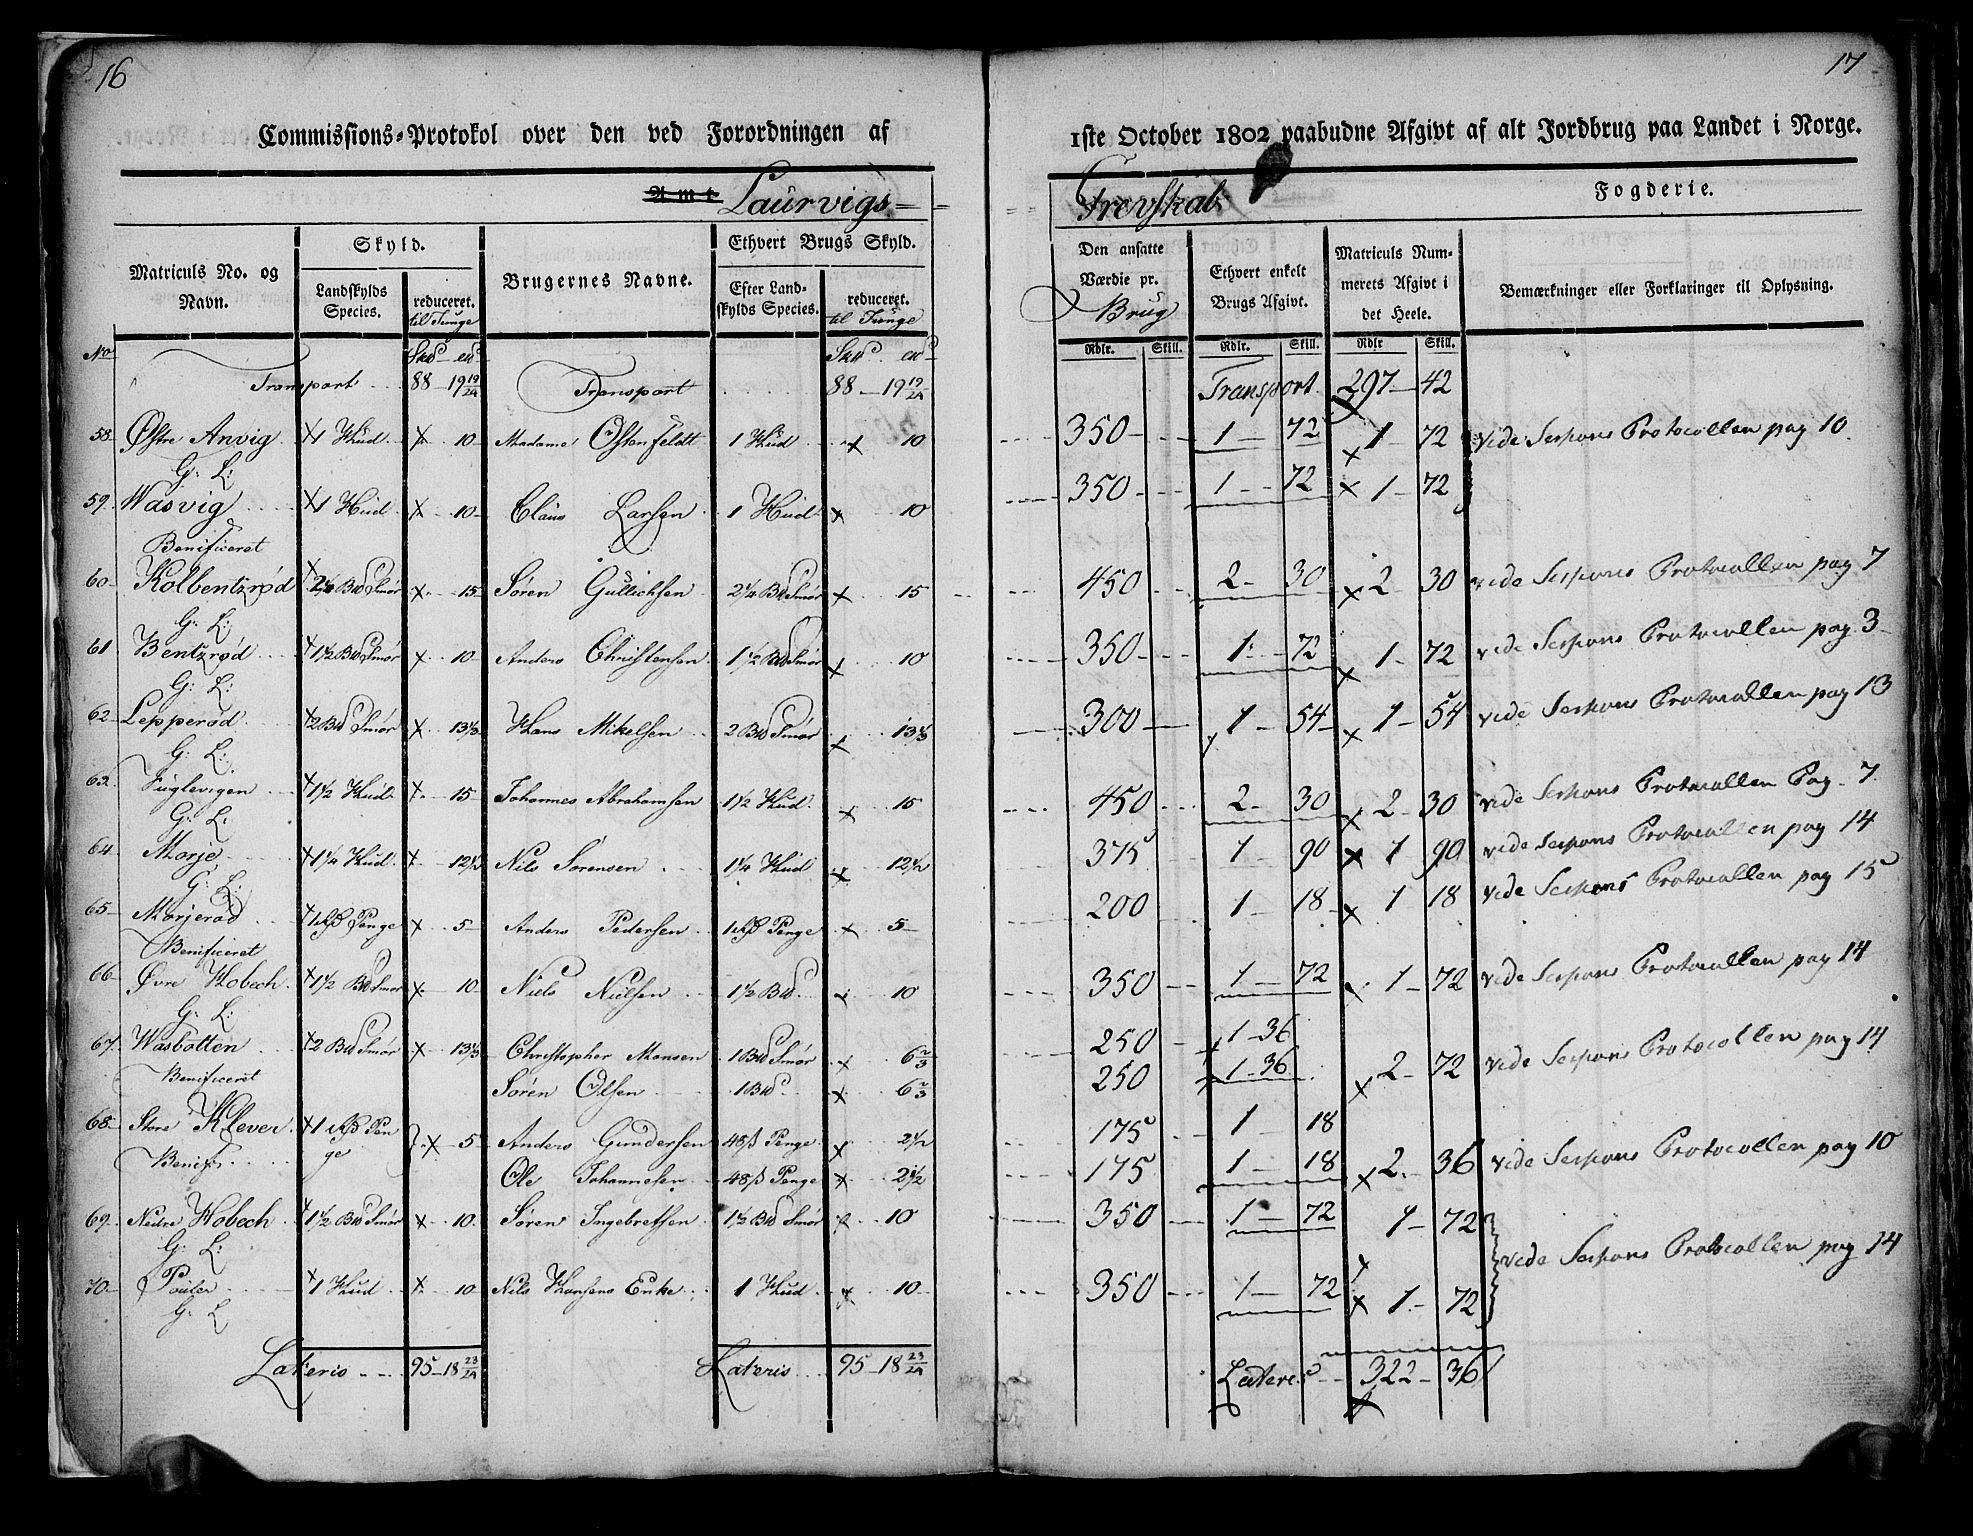 16
Commissions-Protokol over den ved Forordningen af
Amt Laurvigs-
Matriculs No. og Navn.
Skyld.
Landskylds Species.
reduceret. til Tunge
Brugernes Navne.
Ethvert Brugs Skyld.
Efter Landskylds Species.
reduceret. til Tunge
No
Transport 88 - 19 19/24 Transport 88 - 19 19/24
58 Østre Anvig. G: L: 1 Hud 10 Madame Ostenfeldt 1 Hud 10
59 Wasvig Benificeret 1 Hud 10 Claus Larsen 1 Hud 10
60 Kolbentzrød G: L: 2 1/4 Bd Smør 15 Søren Gullichsen 2 1/4 Bd Smør 15
61 Bentzrød G: L: 1 1/2 Bd Smør 10 Anders Christensen 1 1/2 Bd Smør 10
62 Lepperød G: L: 2 Bd Smør 13 1/3 Hans Mikelsen 2 Bd Smør 13 1/3
63 Fuglevigen G: L: 1 1/2 Hud 15 Johannes Abrahamsen 1 1/2 Hud 15
64 Morje G: L: 1 1/4 Hud 12 1/2 Nils Sørensen 1 1/4 Hud 12 1/2
65 Morjerød Benificeret 1 Penge 5 Anders Pedersen 1 Penge 5
66 Øvre Hobech G: L: 1 1/2 Bd Smør 10 Niels Nielsen 1 1/2 Bd 10
67 Wasbotten Benificeret 2 Bd Smør 13 1/3 Christopher Monsen 1 Bd Smør 6 2/3
Søren Olsen 1 Bd 6 2/3
68 Store Klever Benif: 1 Penge 5 Anders Gundersen 48 ß Penge 2 1/2
Ole Johannesen 48 ß Penge 2 1/2
69 Nedre Hobech G: L: 1 1/2 Bd Smør 10 Søren Ingebretsen 1 1/2 Bd Smør 10
70 Pouler G: L 1 Hud 10 Nils Hansens Enke 1 Hud 10
Lateris 95 - 18 23/24 Lateris 95 - 18 23/24
17
1ste October 1802 paabudne Afgivt af alt Jordbrug paa Landet i Norge.
Grevskab Fogderie.
Den ansatte Værdie pr. Brug
Ethvert enkelt Brugs Afgivt.
Matriculs Nummerets Afgivt i det Heele.
Bemærkninger eller Forklaringer til Oplysning.
Rdlr. Skill. Rdlr. Skill. Rdlr Skill.
Transport 297 - 42
350 1 - 72 1 - 72 vide Sessions Protocollen pag 10.
350 1 - 72 1 - 72
450 2 - 30 2 - 30 vide Sessions Protocollen pag 7
350 1 - 72 1 - 72 vide Sessions Protocollen pag 3
300 1 - 54 1 - 54 vide Sessions Protocollen pag 13
450 2 - 30 2 - 30 vide Sessions Protocollen Pag. 7
375 1 - 90 1 90 vide Sessions Protocollen pag 14
200 1 - 18 1 18 vide Sessions Protocollen pag 15
350 1 - 72 1 - 72 vide Sessions Protocollen pag 14
250 1 - 36
250 1 - 36 2 - 72 vide Sessions Protocollen pag 14
175 1 18
175 1 - 18 2 - 36 vide Sessions Protocollen pag 10
350 1 - 72 1 - 72
350 1 - 72 1 - 72 vide Sessions Protocollen pag 14
Lateris 322 - 36